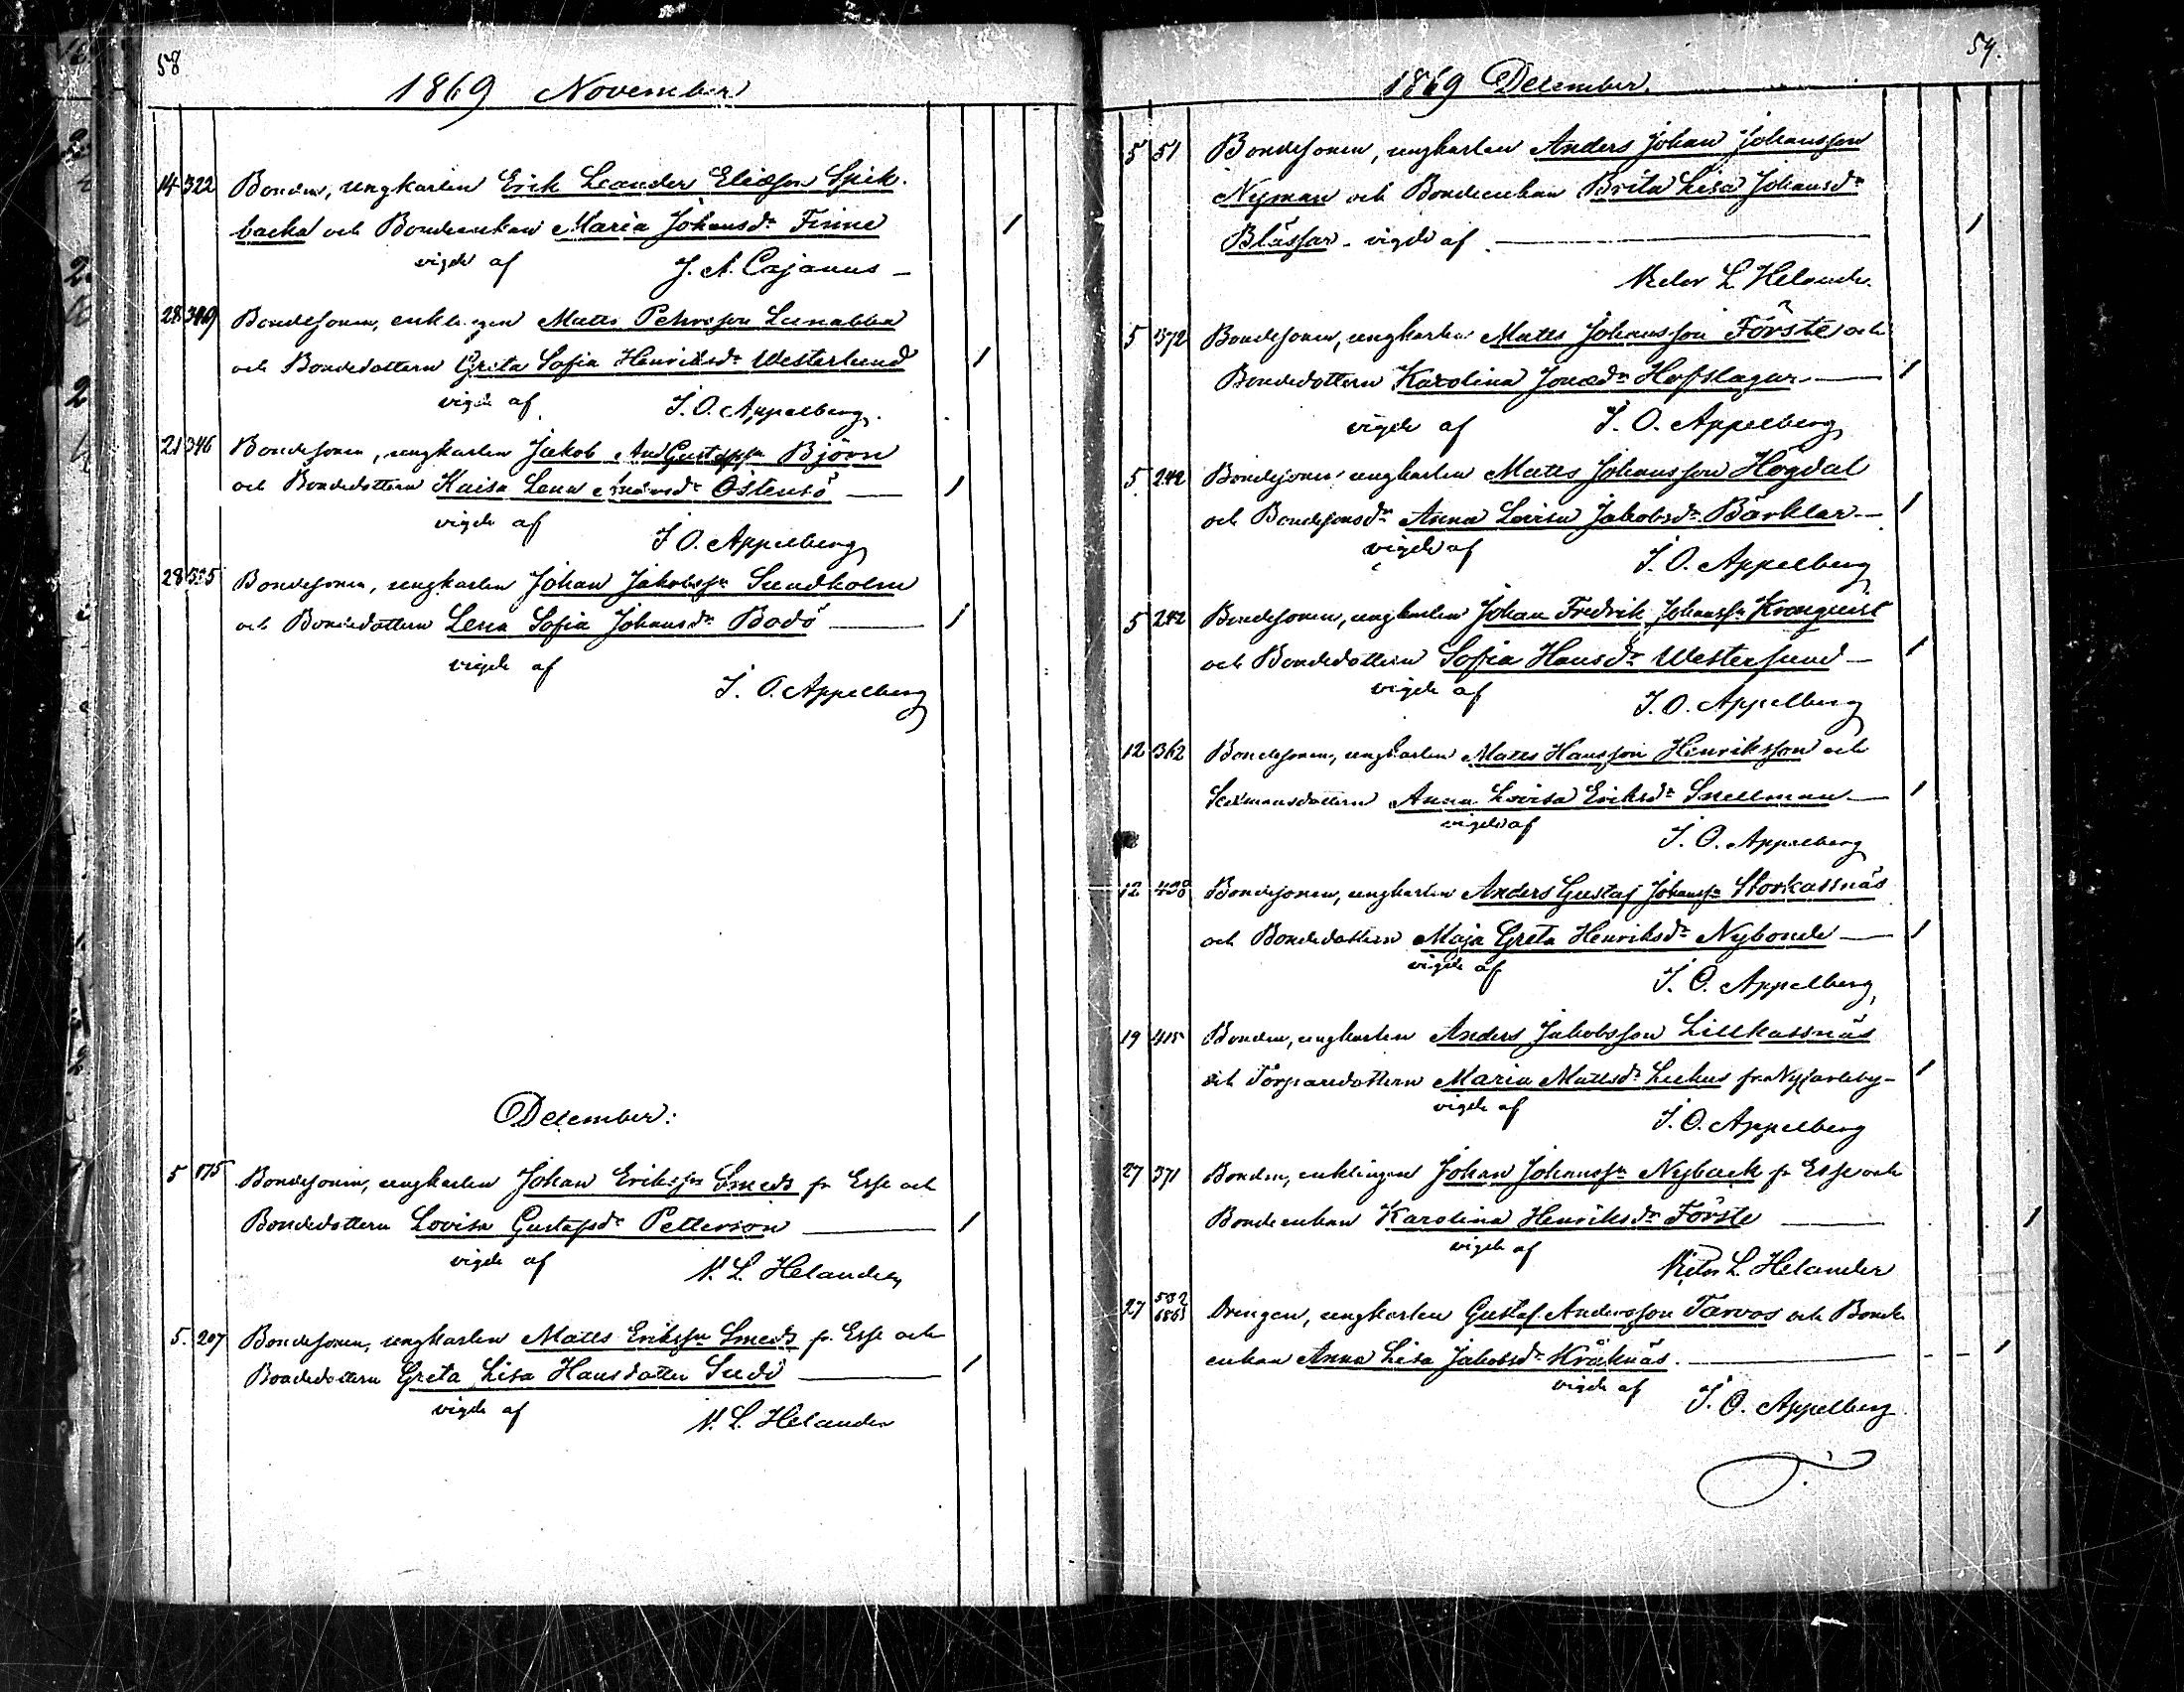 58
1869 November
14 322 Bonden, ungkarlen Erik Leander Eliasson Spik-
backa och Bondeenkan Maria Johansdr Finne 1
vigde af J. A. Cajanus
28 Bondesonen, enklingen Matts Petersson Lunabba
och Bondedottern Greta Sofia Henriksdr Westerlund 1
vigde af J. O. Appelberg.
21 346 Bondesonen, ungkarlen Jakob And Gustafssn Björn
och Bondedottern Kaisa Lena Östensö 1
vigde af J. O. Appelberg
28 Bondesonen, ungkarlen Johan Jakobssn Sundholm
och Bondedottern Lena Sofia Johansdr Bodö 1
vigde af J. O. Appelberg
December:
5 175 Bondesonen, ungkarlen Johan Erikssn Smeds fr Esse och
Bondedottern Lovisa Gustafsdr Petterson 1
vigde af V. L. Helander
5. 207 Bondesonen, ungkarlen Matts Erikssn Smeds fr. Esse och
Bondedottern Greta Lisa Hansdotter Sudö 1
vigde af V. L. Helander
59.
1869 December.
5 51 Bondesonen, ungkarlen Anders Johan Johansson
Nyman och Bondeenkan Brita Lisa Johansdr
Blässar vigde af 1
Victor L. Helander
5 372 Bondesonen, ungkarlen Matts Johansson Förste och
Bondedottern Karolina Jonasdr Hofslagar 1
vigde af J. O. Appelberg
5 242 Bondesonen ungkarlen Matts Johansson Högdal
och Bondesonsdr Anna Lovisa Jakobsdr Bärklar 1
vigde af J. O. Appelberg
5 242 Bondesonen, ungkarlen Johan Fredrik Johanssn Kronquist
och Bondedottern Sofia Hansdr Westersund 1
vigde af J. O. Appelberg
12 362 Bondesonen, ungkarlen Matts Hansson Henriksson och
Anna Lovisa Eriksdr Snellman 1
vigde af J. O. Appelberg
12 408 Bondesonen, ungkarlen Anders Gustaf Johanssn Storkassnäs
och Bondedottern Maja Greta Henriksdr Nybonde 1
vigde af J. O. Appelberg
19 415 Bonden, ungkarlen Anders Jakobsson Lillkassnäs
och Torparedottern Maria Mattsdr fr Nykarleby 1
vigde af J. O. Appelberg
27 371 Bonden, enklingen Johan Johanssn Nyback fr Esse och
Bondeenkan Karolina Henriksdr Förste 1
vigde af Victor L. Helander
27 532 Drengen, ungkarlen Gustaf Andersson Tarvos och Bonde
enkan Anna Lisa Jakobsdr Kråknäs. 1
vigde af J. O. Appelberg